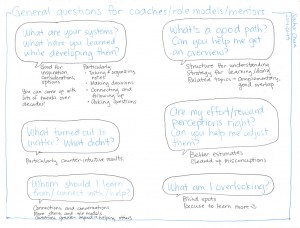 General questions for coaches/role models/mentors
What are your systems?
What have you learned
while developing them?
Good for
inspiration,
considerations,
options
You can come up with
lots of tweaks over
decades!
Particularly
- Taking & organizing
notes
- Making decisions
- Connecting and
following up
- Asking questions
What turned out to
matter? What didn't?
Particularly counter-intuitive results
Whom should I learn
from/connect with/help?
Connections and conversations
More stories and role models
greater impact - helping others
What's a good path?
Can you help me get
an overview?
Structure for understanding
Strategy for learning/doing
Related topics = complementary,
good overlap
Are my effort/reward
perceptions right?
Can you help me adjust
them?
Better estimates
Cleared-up misconceptions
What am I overlooking?
Blind spots
Excuse to learn more